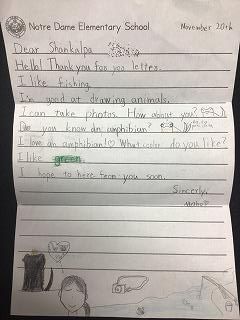 Notre Dame Elementary School
November 20th
Dear Shankalpa
Hello! Thank you for you letter.
I like fishing.
I'm good at drawing animals.
I can take photos. How about you?
Do you know an amphibian?
I love an amphibian! What color do you like?
I like green.
I hope to here from you soon.
Sincerely,